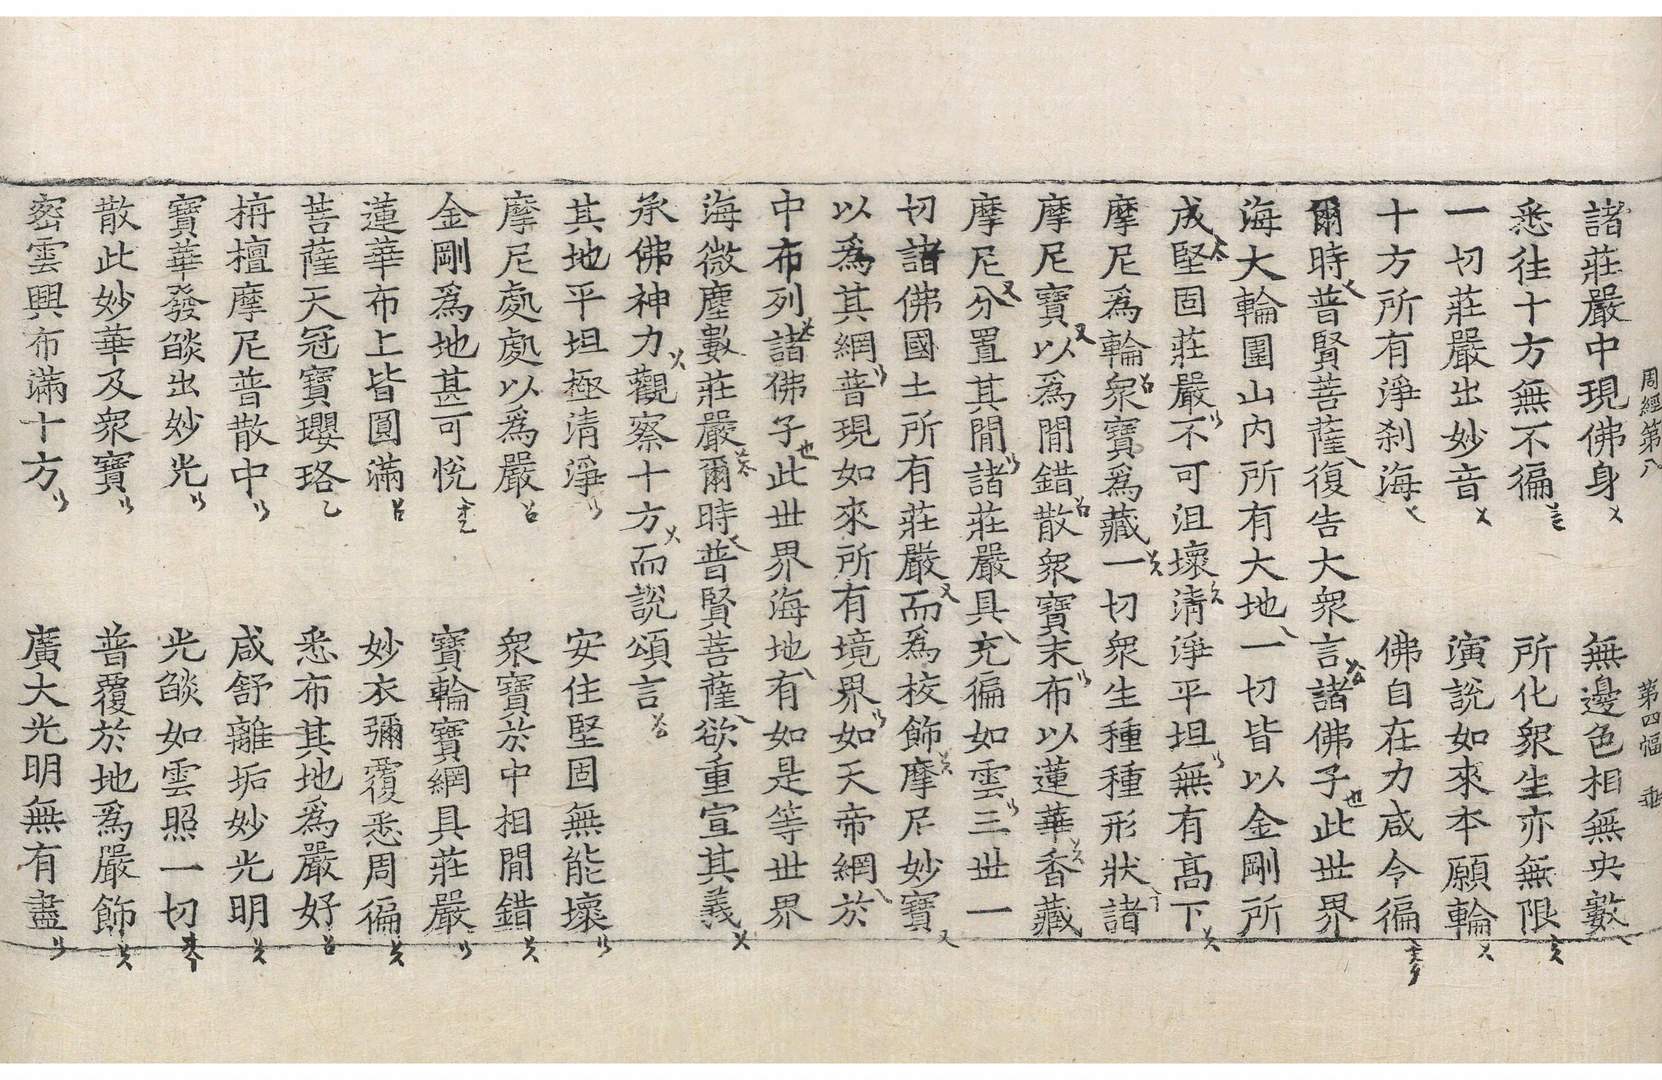 周經第八 第四幅
諸莊嚴中現佛身 無邊色相無央數
悉往十方無不徧 所化衆生亦無限
一切莊嚴出妙音 演說如來本願輪
十方所有淨刹海 佛自在力咸令徧
爾時普賢菩薩復告大衆言諸佛子此世界
海大輪圍山內所有大地一切皆以金剛所
成堅固莊嚴不可沮壞清淨平坦無有高下
摩尼爲輪衆寶爲藏一切衆生種種形狀諸
摩尼寶以爲閒錯散衆寶末布以蓮華香藏
摩尼分置其閒諸莊嚴具充徧如雲三世一
切諸佛國土所有莊嚴而爲校飾摩尼妙寶
以爲其網普現如來所有境界如天帝網於
中布列諸佛子此世界海地有如是等世界
海微塵數莊嚴爾時普賢菩薩欲重宣其義
承佛神力觀察十方而說頌言
其地平坦極清淨 安住堅固無能壞
摩尼處處以爲嚴 衆寶於中相閒錯
金剛爲地甚可悅 寶輪寶網具莊嚴
蓮華布上皆圓滿 妙衣彌覆悉周徧
菩薩天冠寶瓔珞 悉布其地爲嚴好
栴檀摩尼普散中 咸舒離垢妙光明
寶華發焰出妙光 光焰如雲照一切
散此妙華及衆寶 普覆於地爲嚴飾
密雲興布滿十方 廣大光明無有盡